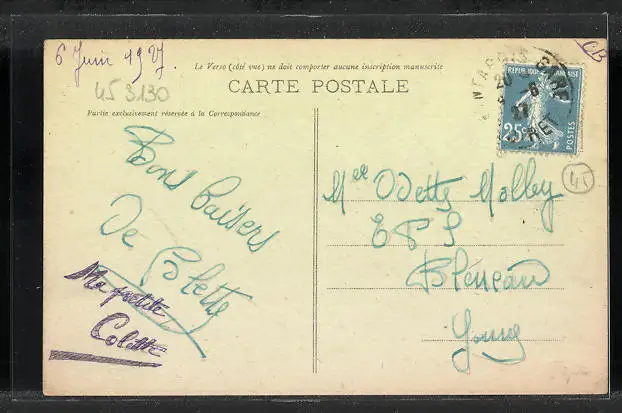 6 Juin 1927.
CB
Le Verso (côté vue) ne doit comporter aucune inscription manuscrite
CARTE POSTALE
45 3130
Partie exclusivement réservée à la Correspondance
Bons baisers
De Colette
Ma petite
Colette
REPUBLIQUE FRANÇAISE
25c
POSTES
MONTARGIS GARE
20
6
27
LOIRET
45
Mlle Odette Malley
E P S
Bléneau
Yonne